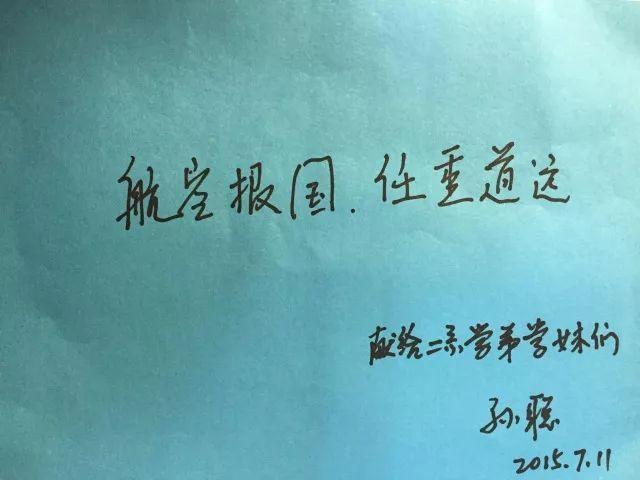 航空报国.任重道远
献给二系学弟学妹们
孙聪
2015.7.11